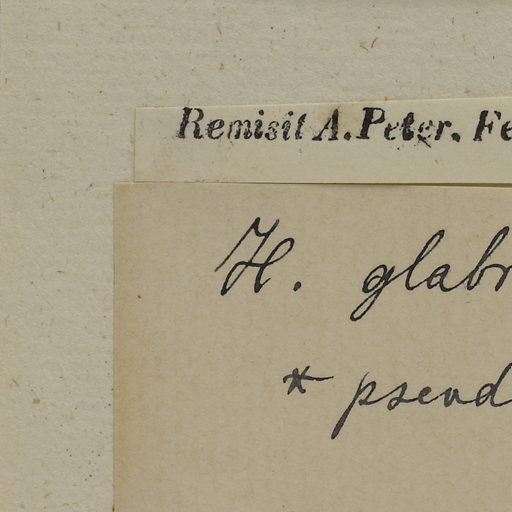 Remisit A. Peter. Fe
H. glabr
* pseud